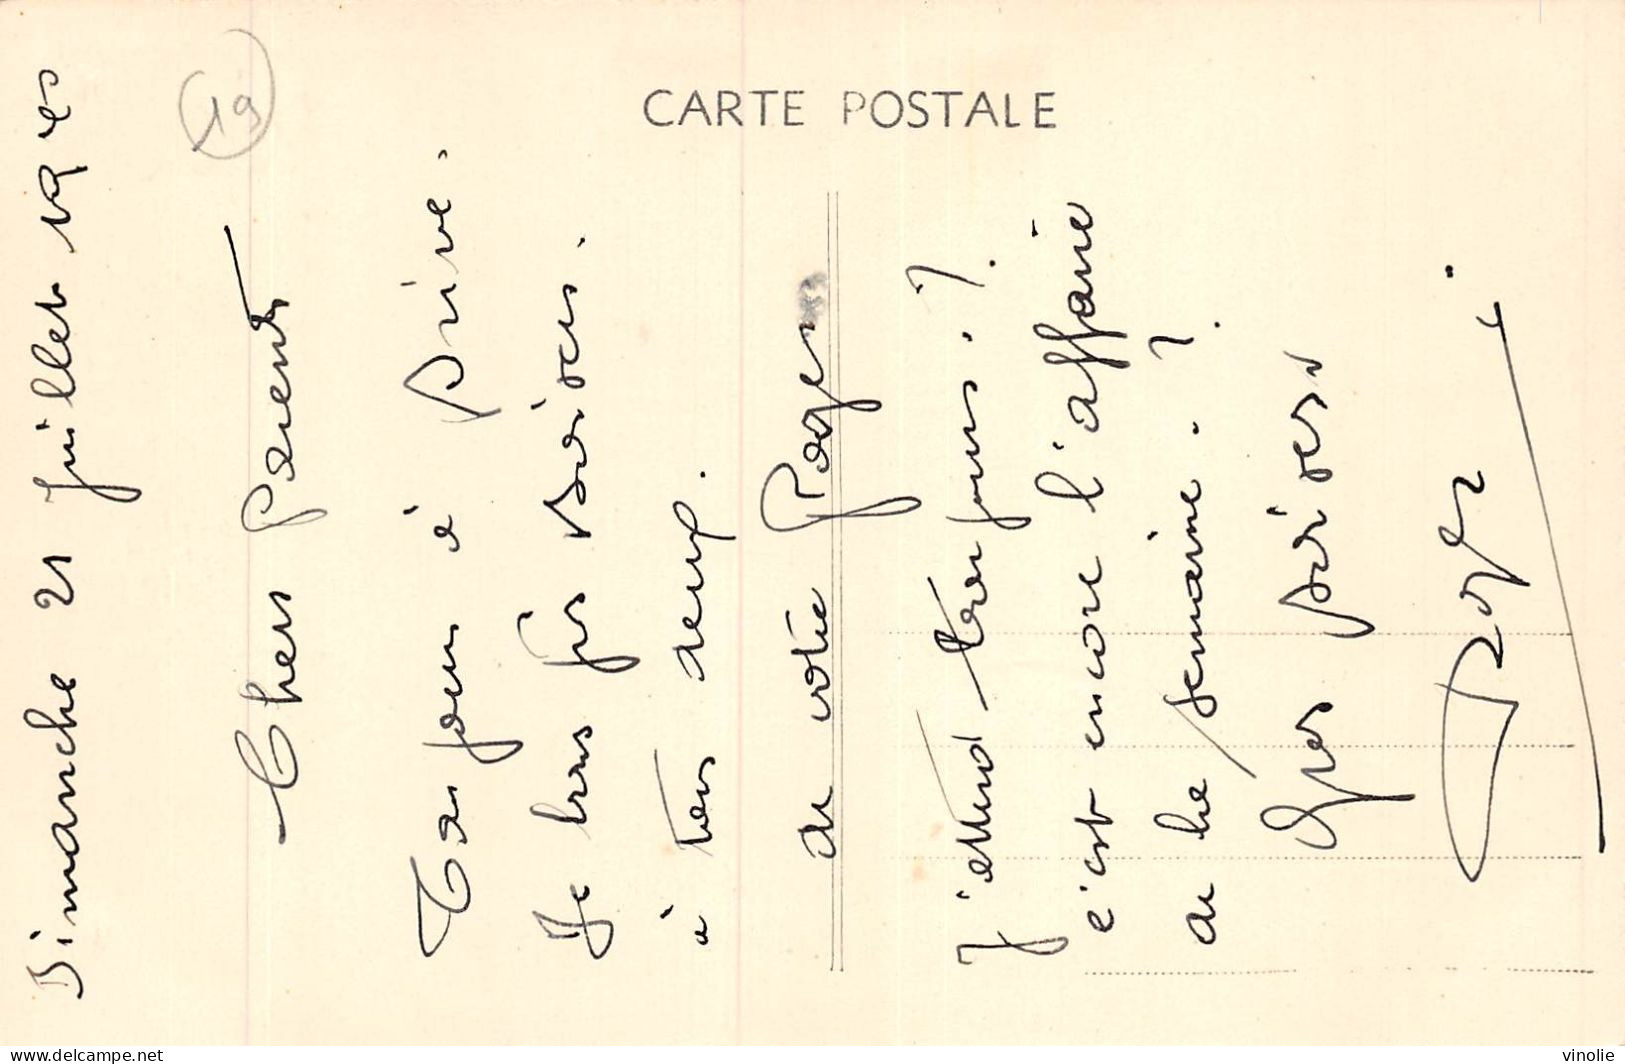 CARTE POSTALE
19
Dimanche 21 Juillet 1940
Chers Parents
Toujours à Brive.
Je vous fais baisers
à tous deux.
de votre Roger
J'attend toujours.
c'est encore l'affaire
de la semaine.
Gros baisers
Roger
delcampe.net
vinolie